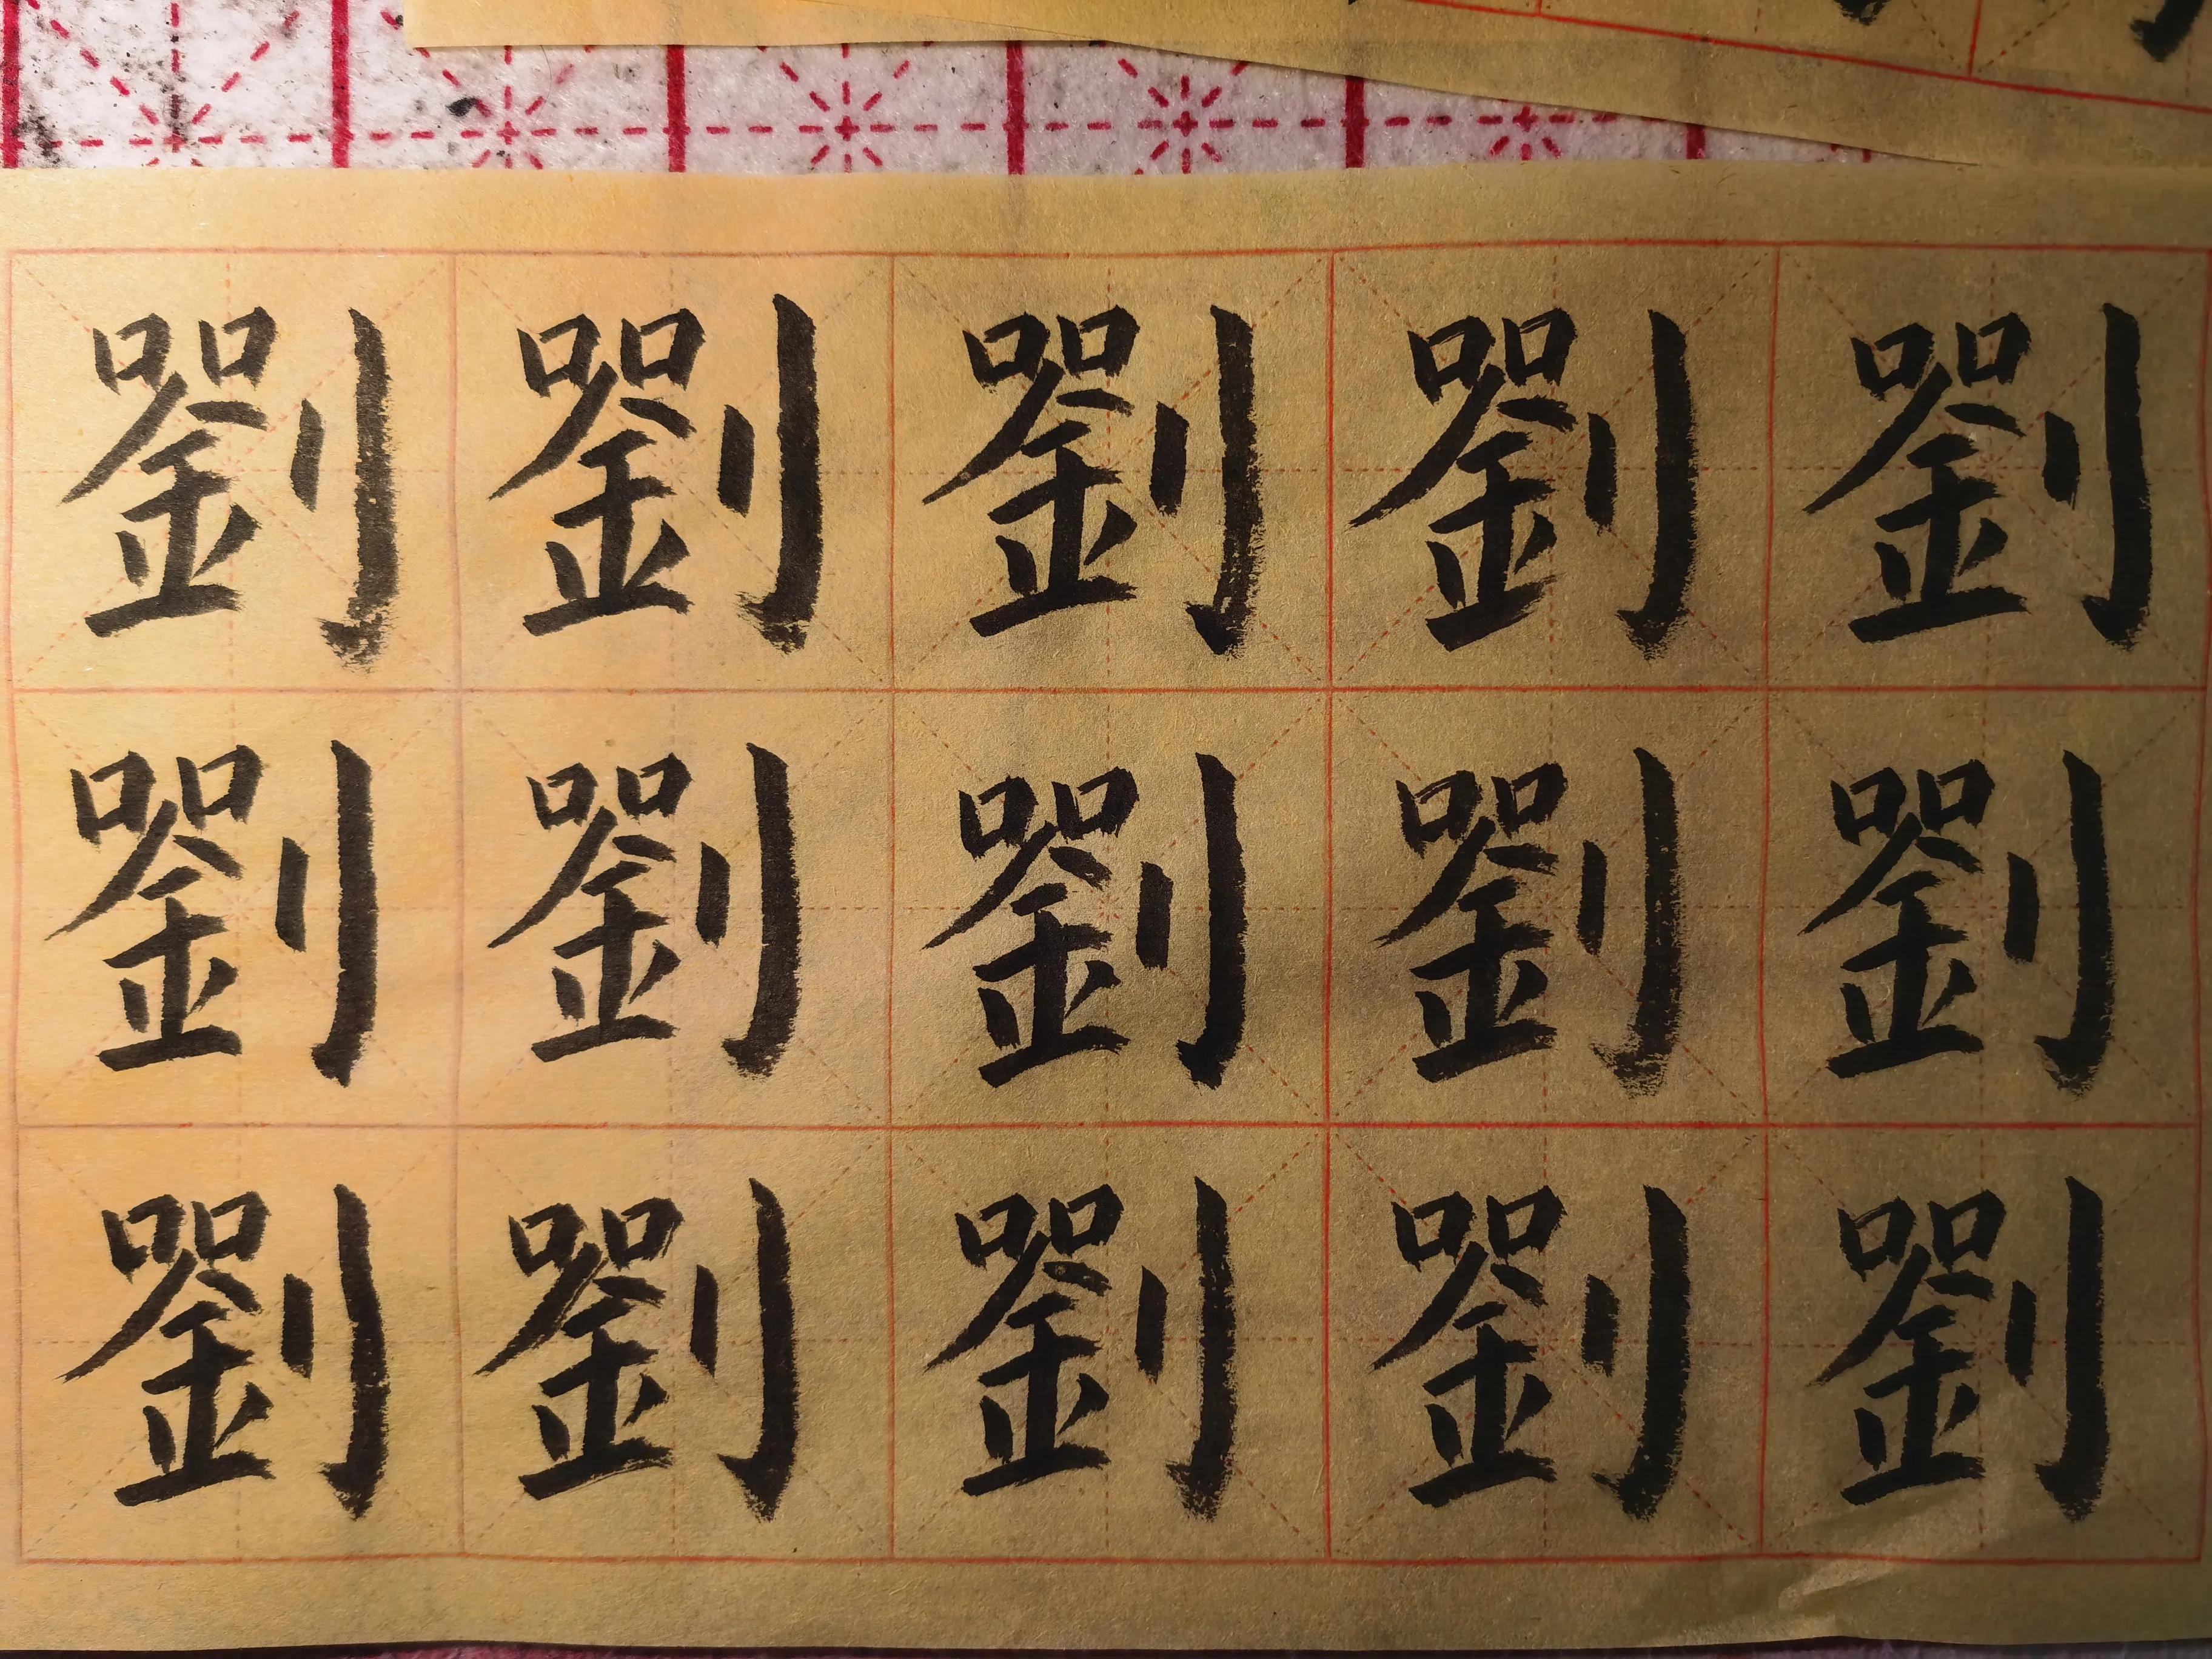 劉劉劉劉劉
劉劉劉劉劉
劉劉劉劉劉